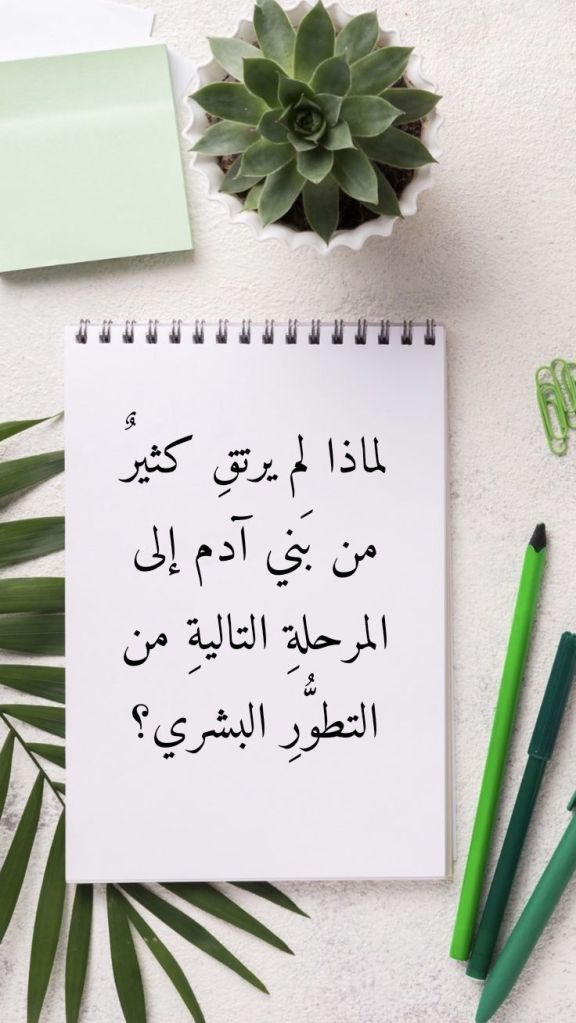 لماذا لم يرتقِ كثيرٌ
من بَني آدم إلى
المرحلةِ التاليةِ من
التطوُّرِ البشري؟